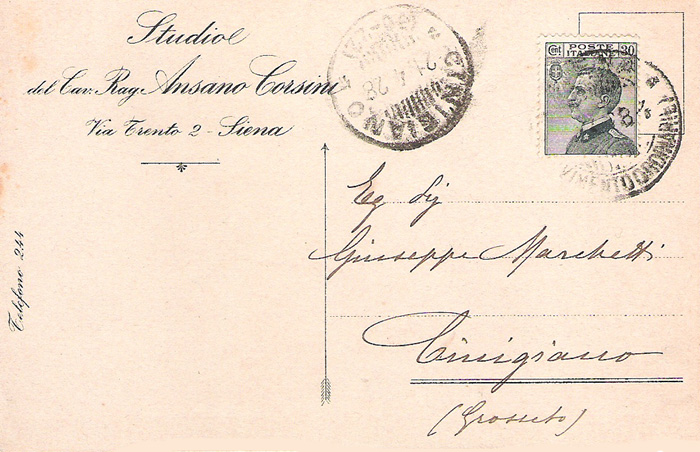 Studio
del Cav. Rag. Ansano Corsini
Via Trento 2 - Siena
Telefono 244
CINIGIANO
21.4.28
Cent POSTE 30
ITALIANE
Eg Sig
Giuseppe Marchetti
Cinigiano
(Grosseto)